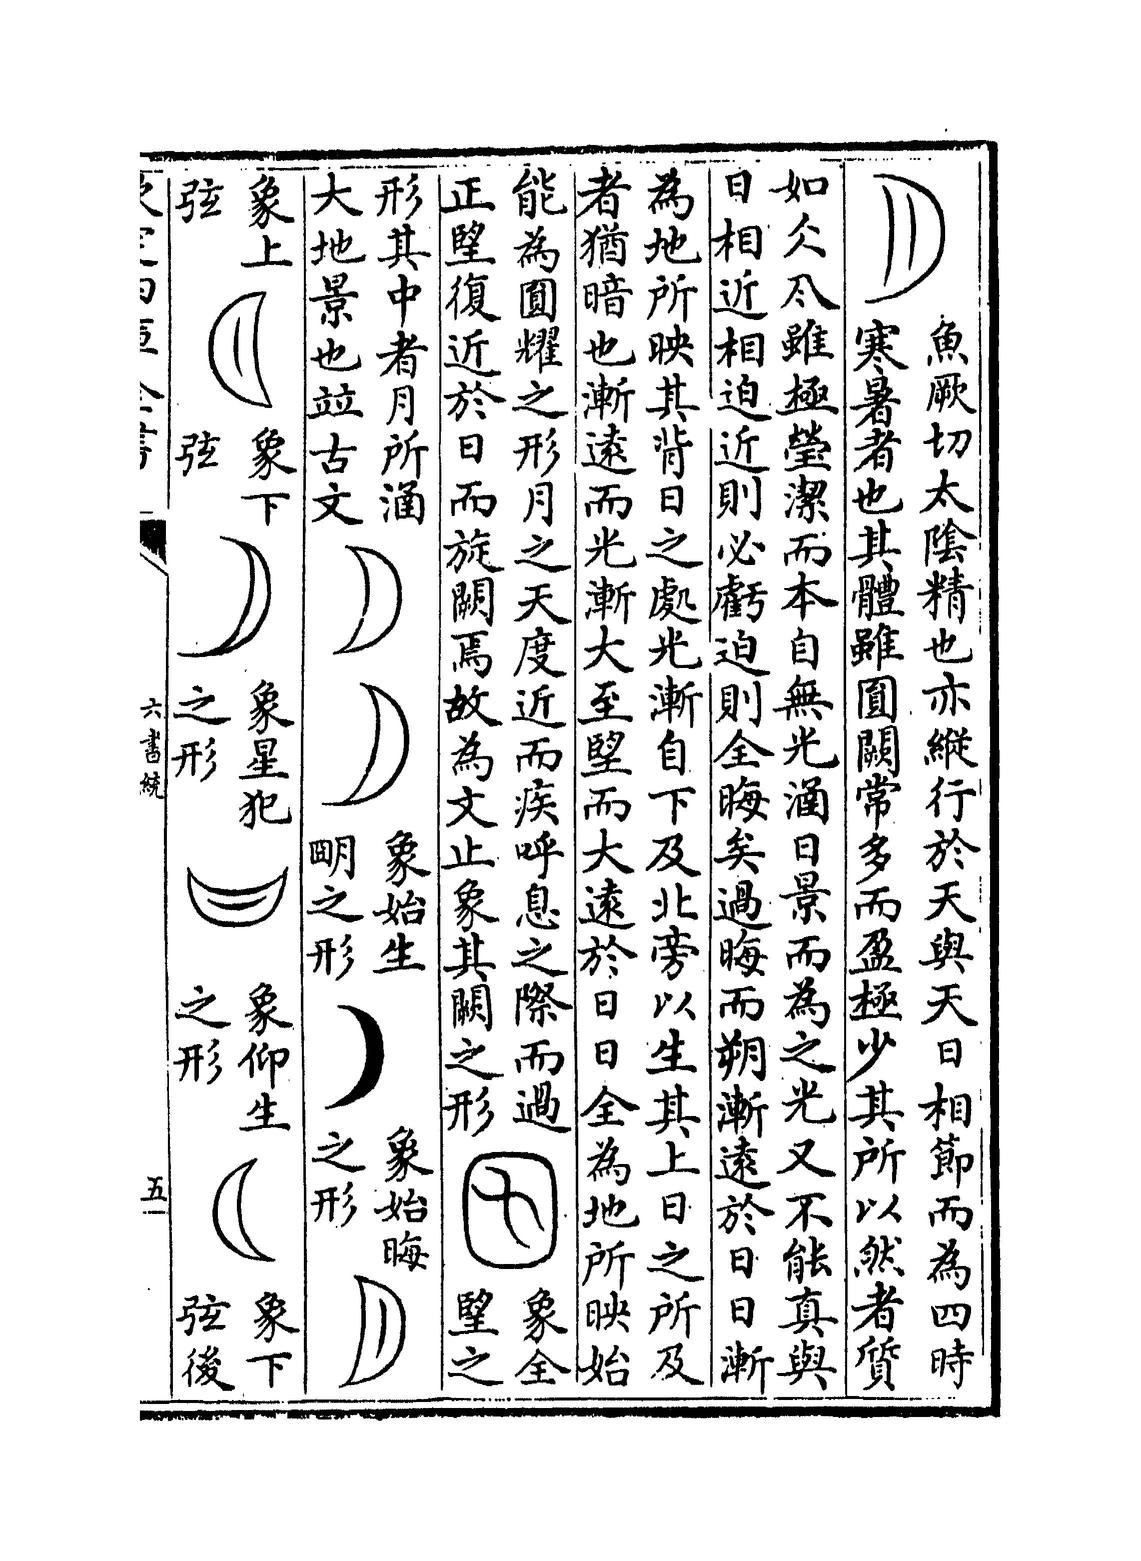 魚厥切太陰精也亦縱行於天與天日相節而為四時
寒暑者也其體雖圓闕常多而盈極少其所以然者質
如仌雖極瑩潔而本自無光涵日景而為之光又不能真與
日相近相迫近則必虧迫則全晦矣過晦而朔漸遠於日日漸
為地所映其背日之處光漸自下及北旁以生其上日之所及
者猶暗也漸遠而光漸大至朢而大遠於日日全為地所映始
能為圓耀之形月之天度近而疾呼息之際而過
正朢復近於日而旋闕焉故為文止象其闕之形
象全
朢之
形其中者月所涵
大地景也竝古文
象始生
朙之形
象始晦
之形
象上
弦
象下
弦
象星犯
之形
象仰生
之形
象下
弦後
六書統
五